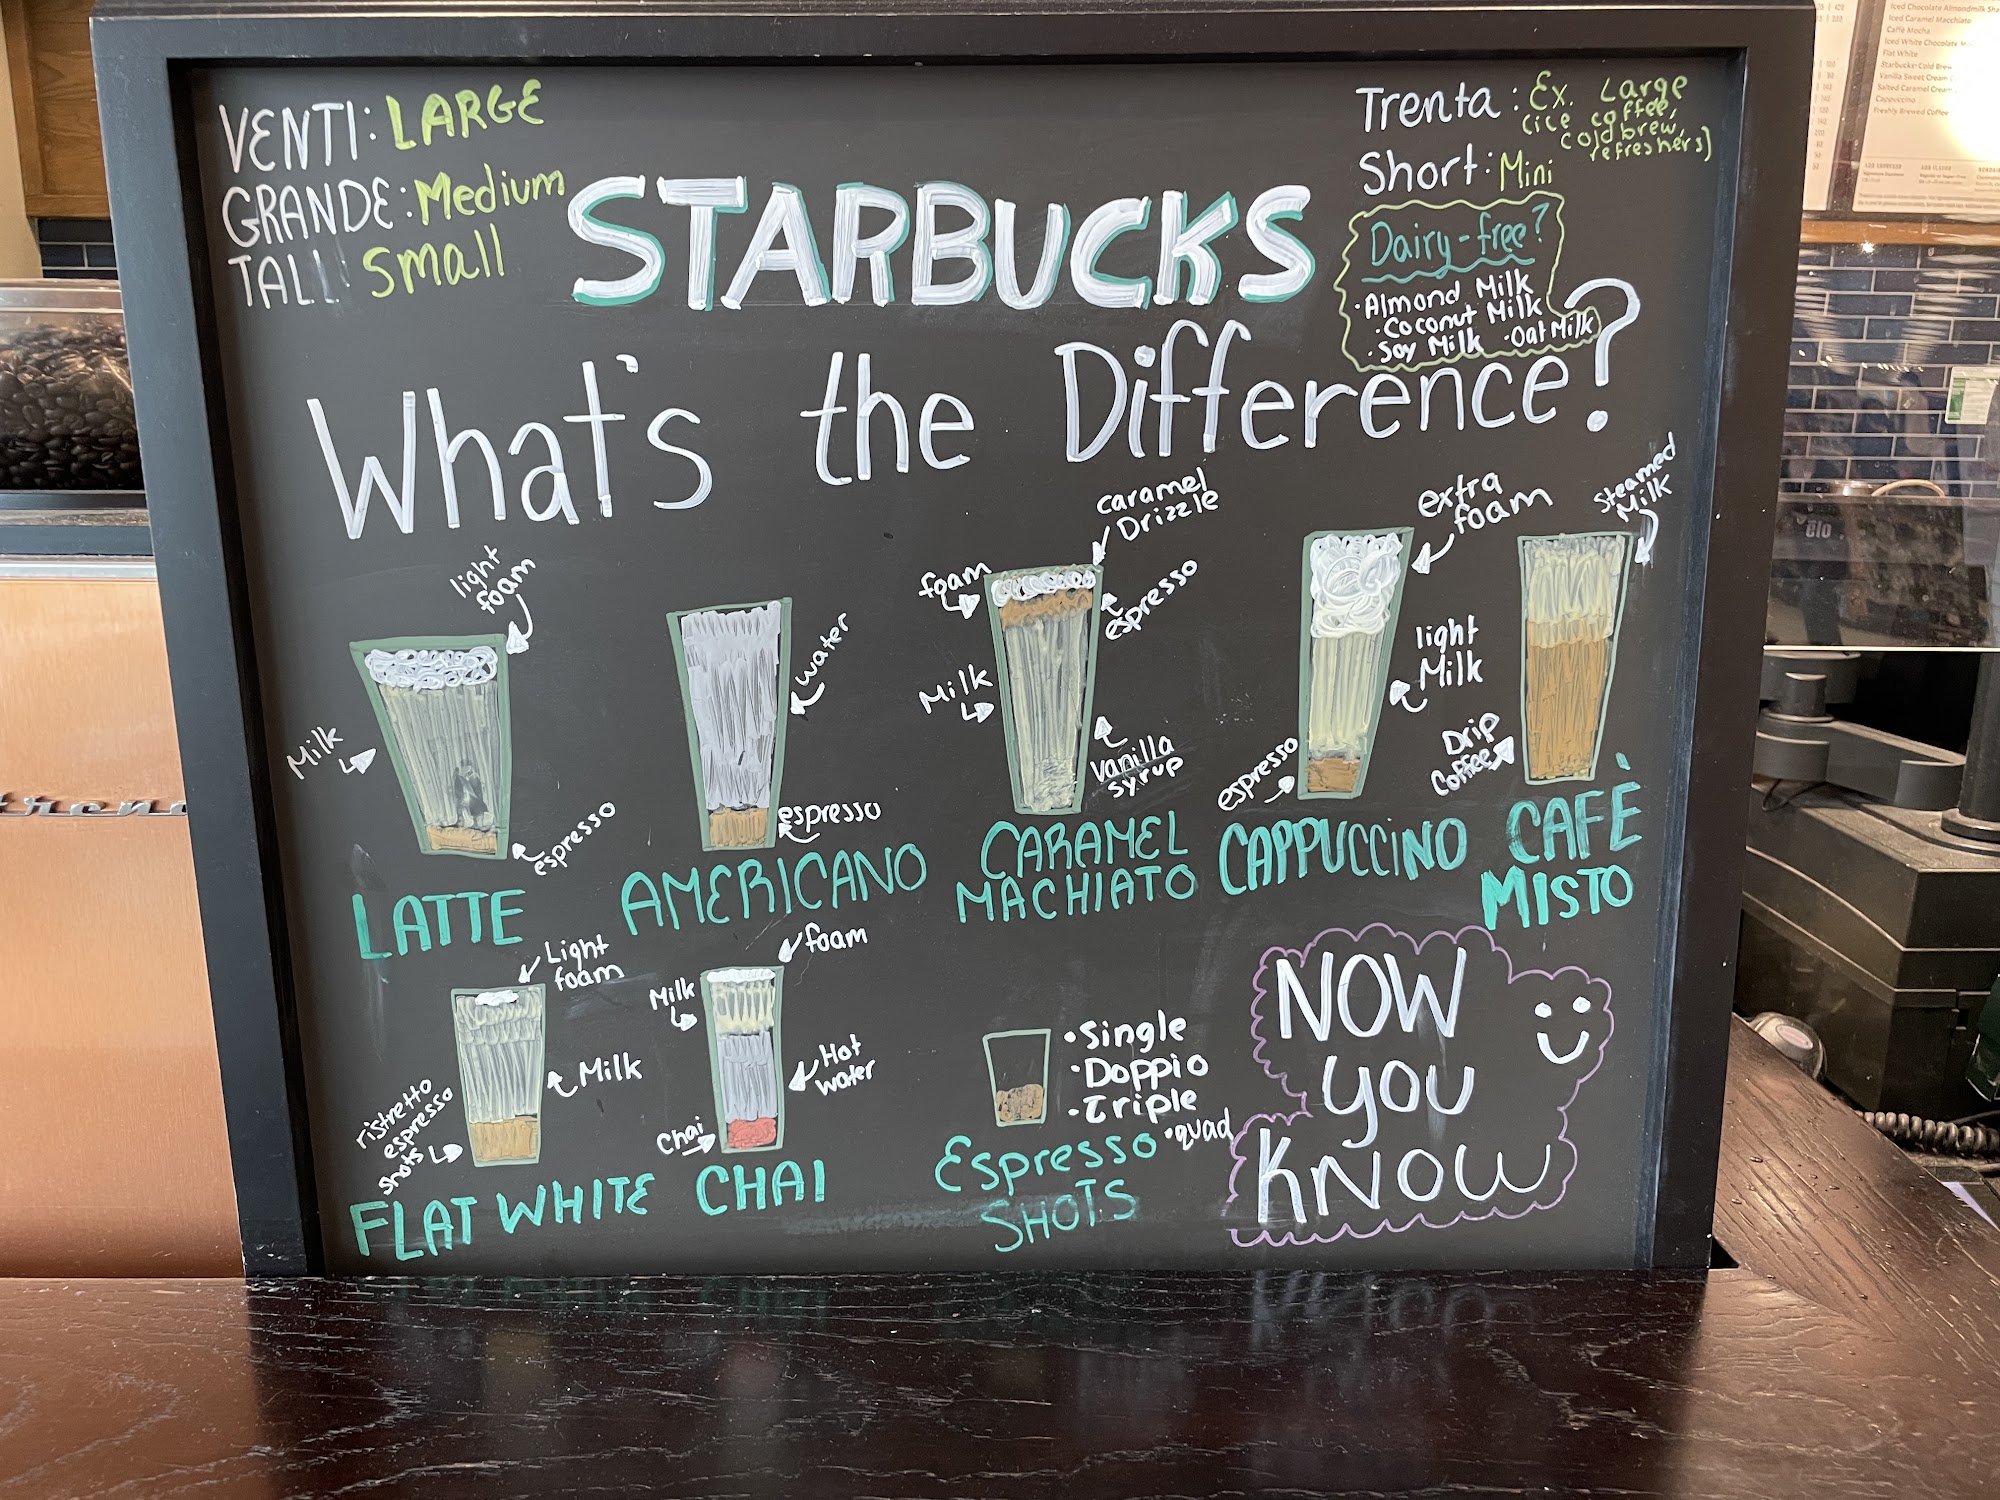 VENTI: LARGE
GRANDE: Medium
TALL: small
Trenta: Ex. Large
(ice coffee,
coldbrew,
refreshers)
Short: Mini
STARBUCKS
Dairy-free?
·Almond Milk
·Coconut Milk
·Soy Milk ·Oat Milk
What's the Difference?
light
foam
Milk
espresso
LATTE
water
espresso
AMERICANO
caramel
Drizzle
foam
espresso
Milk
Vanilla
syrup
CARAMEL
MACHIATO
extra
foam
light
Milk
espresso
CAPPUCCINO
Steamed
Milk
Drip
Coffee
CAFÈ
MISTO
Light
foam
Milk
ristretto
espresso
shots
FLAT WHITE
foam
Milk
Hot
water
Chai
CHAI
·Single
·Doppio
·Triple
·quad
Espresso
SHOTS
NOW
YOU
KNOW
Iced Caramel Macchiato
Caffè Mocha
Flat White
Cappuccino
Freshly Brewed Coffee
elo